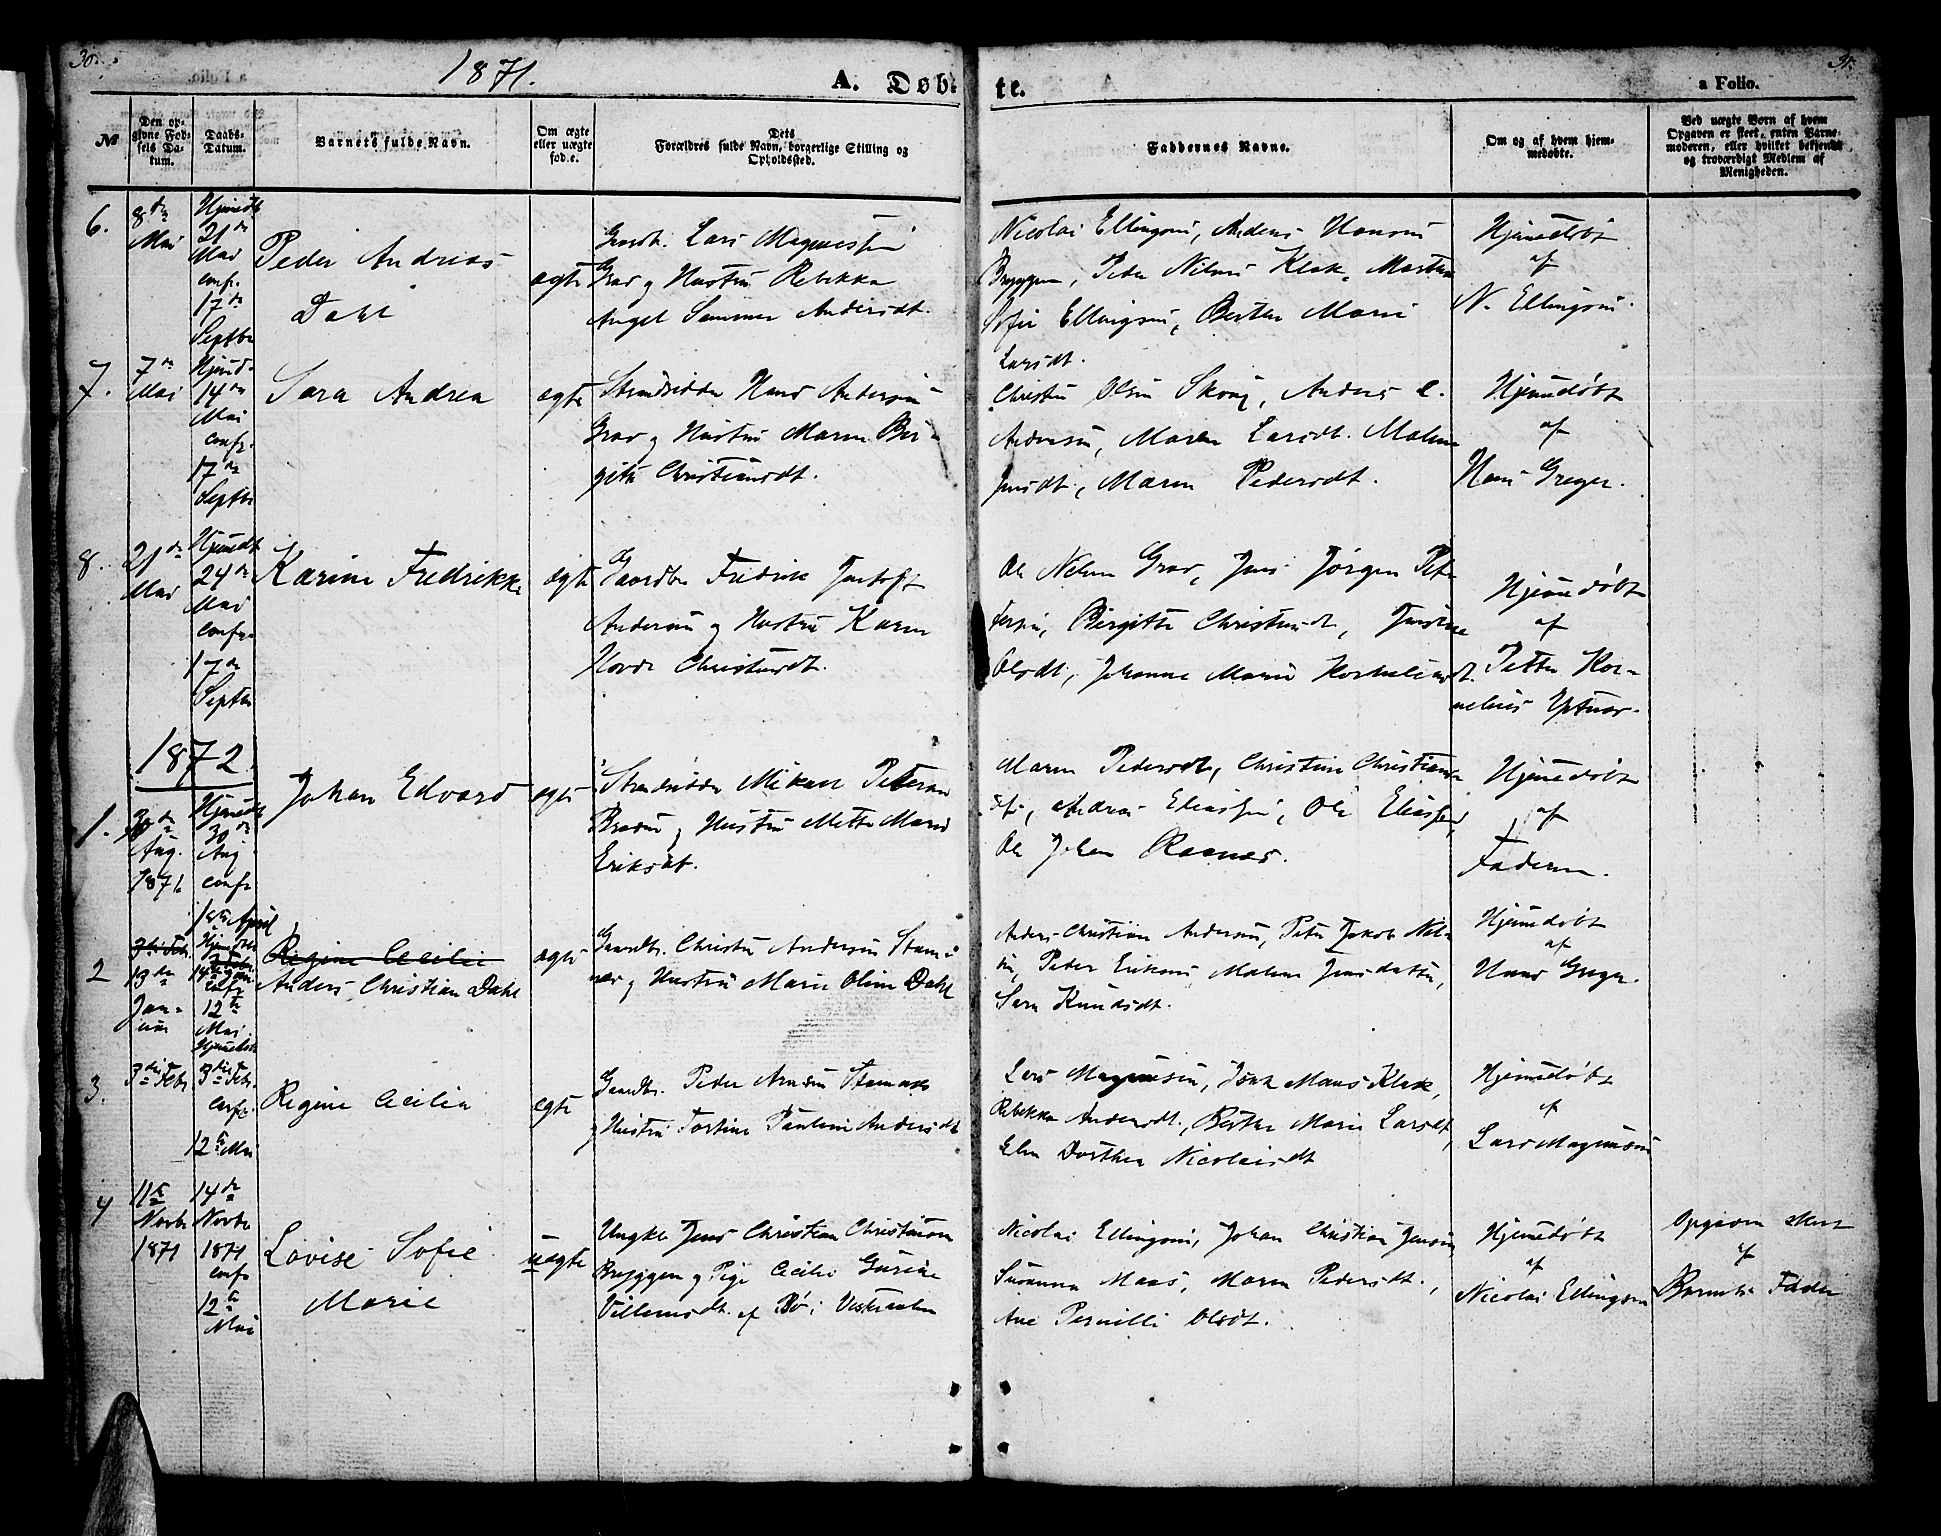 30.
1871.
A. Døb-
te.
a Folio.
31.
№
Den op-
givne Fød-
sels Da-
tum.
Daabs-
Datum.
Barnets fulde Navn.
Om ægte
eller uægte
fød.e.
Dets
Forældres fulde Navn, borgerlige Stilling og
Opholdssted.
Faddernes Navne.
Om og af hvem hjem-
medøbte.
Ved uægte Børn af hvem
Opgaven er skeet, enten Barne-
moderen, eller hvilket bekjendt
og troværdigt Medlem af
Menigheden.
6.
8de
Mai
Hjemdbt
21de
Mai
conf.
17de
Septbr
Peder Andreas
Dahl
ægte
Gaardb. Lars Magnussen
Grav og Hustru Rebekka
Angel Sommer Andersdt.
Nicolai Ellingsen, Anders Hansen
Bryggen, Peder Nilsen Klak, Martha
Sofie Ellingsen, Berthe Marie
Larsdt.
Hjemedøbt
af
N. Ellingsen.
7.
7de
Mai
Hjemd.
14de
Mai
confr.
17de
Septbr
Sara Andrea
ægte
Strandsidder Hans Andersen
Grav og Hustru Maren Bir-
gitte Christiansdt.
Christen Olsen Skoug, Anders C.
Andersen, Maren Larsdt. Malene
Jensdt., Maren Pedersdt.
Hjemedøbt
af
Hans Greger.
8.
21de
Mai
Hjemdbt
24de
Mai
confr.
17de
Septbr
Karine Fredrikke
ægte
Gaardbr Fredrik Jentoft
Andersen og Hustru Karen
Hovde Christensdt.
Ole Nilsen Grav, Jens Jørgen Pet-
tersen, Birgitte Christensdt, Justine
Olsdt., Johanne Marie Kornelius dt.
Hjemedøbt
af
Petter Kor-
nelius
1872.
1.
30de
Aug.
1871.
Hjemdt
30de
Aug
conf.
1ste April
Johan Edvard
ægte
Strandsidder Mikael Petersen
og Hustru Mette Marie
Eriksdt.
Maren Pedersdt, Christine Christians-
dt., Andreas Eliassen, Ole Eliassen,
Ole Johan Raanes.
Hjemedøbt
af
Faderen.
2
3die Feb.
13de
Jan-
uar
Hjemdbt
14de
conf.
12te
Mai.
Regine Cecilie
Anders Christian Dahl
ægte
Gaardb. Christen Andersen Stam-
nes og Hustru Marie Oline Dahl
Anders Christian Andersen, Peter Jakob Niel-
sen, Peder Eriksen, Malene Jensdatter,
Sara Knudsdt.
Hjemedøbt
af
Hans Greger.
3.
3die Feb.
Hjemdbt
3die Feb.
conf.
12te Mai
Regine Cecilia
ægte
Gaardbr. Peder Arntsen Stamnes
og Hustru Tortine Pauline Andersdt
Lars Magnussen, Isak Maas Klak,
Rebekka Andersdt., Berthe Marie Larsdt,
Elen Dorthea Nicolaisdt
Hjemedøbt
af
Lars Magnussen
4
11te
Novbr
1871
14de
Novbr
1871
conf.
12te
Mai
Lovise Sofie
Marie
uægte
Ungkl. Jens Christian Christensen
Bryggen og Pige Cecilie Gurine
Villumsdt. af Bø i Vesteraalen
Nicolai Ellingsen, Johan Christian Jensen
Susanna Maas, Maren Pedersdt.,
Ane Pernille Olsdt.
Hjemedøbt
af
Nicolai Ellingsen
Opgaven skeet
af
Barnets Fader